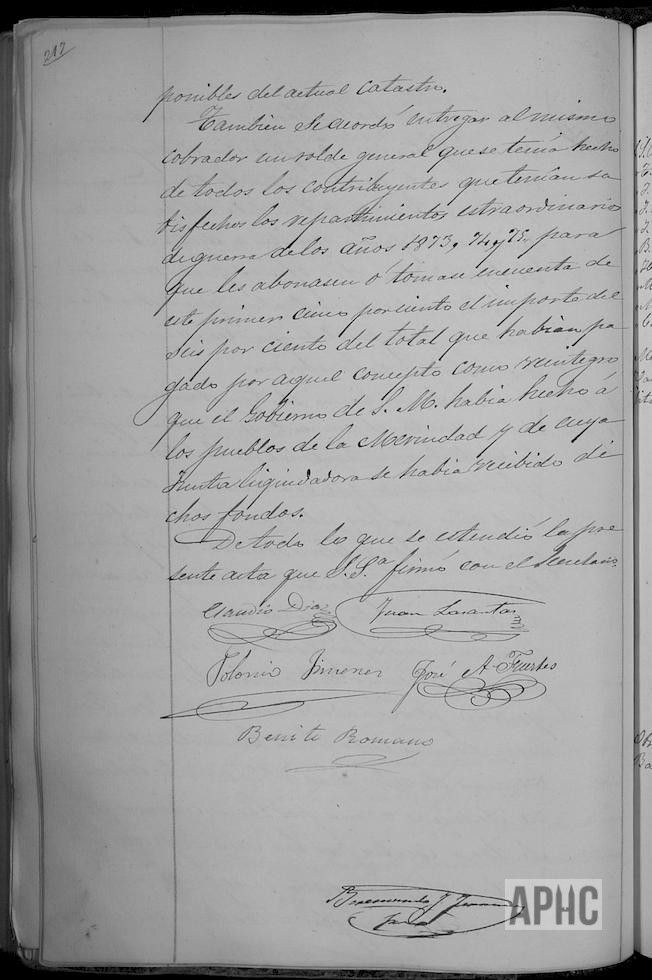 217
ponibles del actual catastro.
Tambien se acordó entregar al mismo
cobrador un rolde general que se tenía hecho
de todos los contribuyentes que tenían sa
tisfechos los repartimientos estraordinarios
de guerra de los años 1873, 74 y 75, para
que les abonasen ó tomase en cuenta de
este primer cinco por ciento el importe del
seis por ciento del total que habían pa
gado por aquel concepto como reintegro
que el Gobierno de S. M. habia hecho á
los pueblos de la Merindad y de cuya
Junta liquidadora se habia recibido di
chos fondos.
De todo lo que se estendió la pre
sente acta que S. Sª firmó con el Secretario
Claudio Diaz Juan Lasantas
Polonio Jimenez José A. Fuertes
Benito Romano
APHC